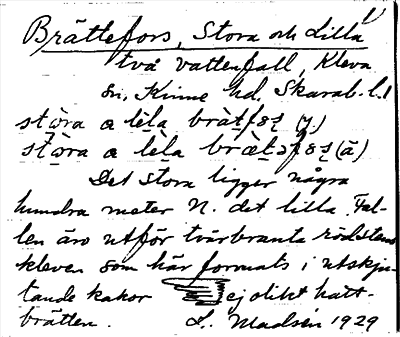 Brättefors, Stora och Lilla
två vattenfall, Kleva
sn, Kinne hd. Skarab. l.
stòra a lìla bràtfɷʂ (y)
stòra a lèla bræ̀təfɷʂ (ä)
Det stora ligger några
hundra meter N. det lilla. Fal-
len äro utför tvärbranta rödstens
kleven som här formats i utskju-
tande kakor ej olikt hatt-
brätten. L. Madsén 1929